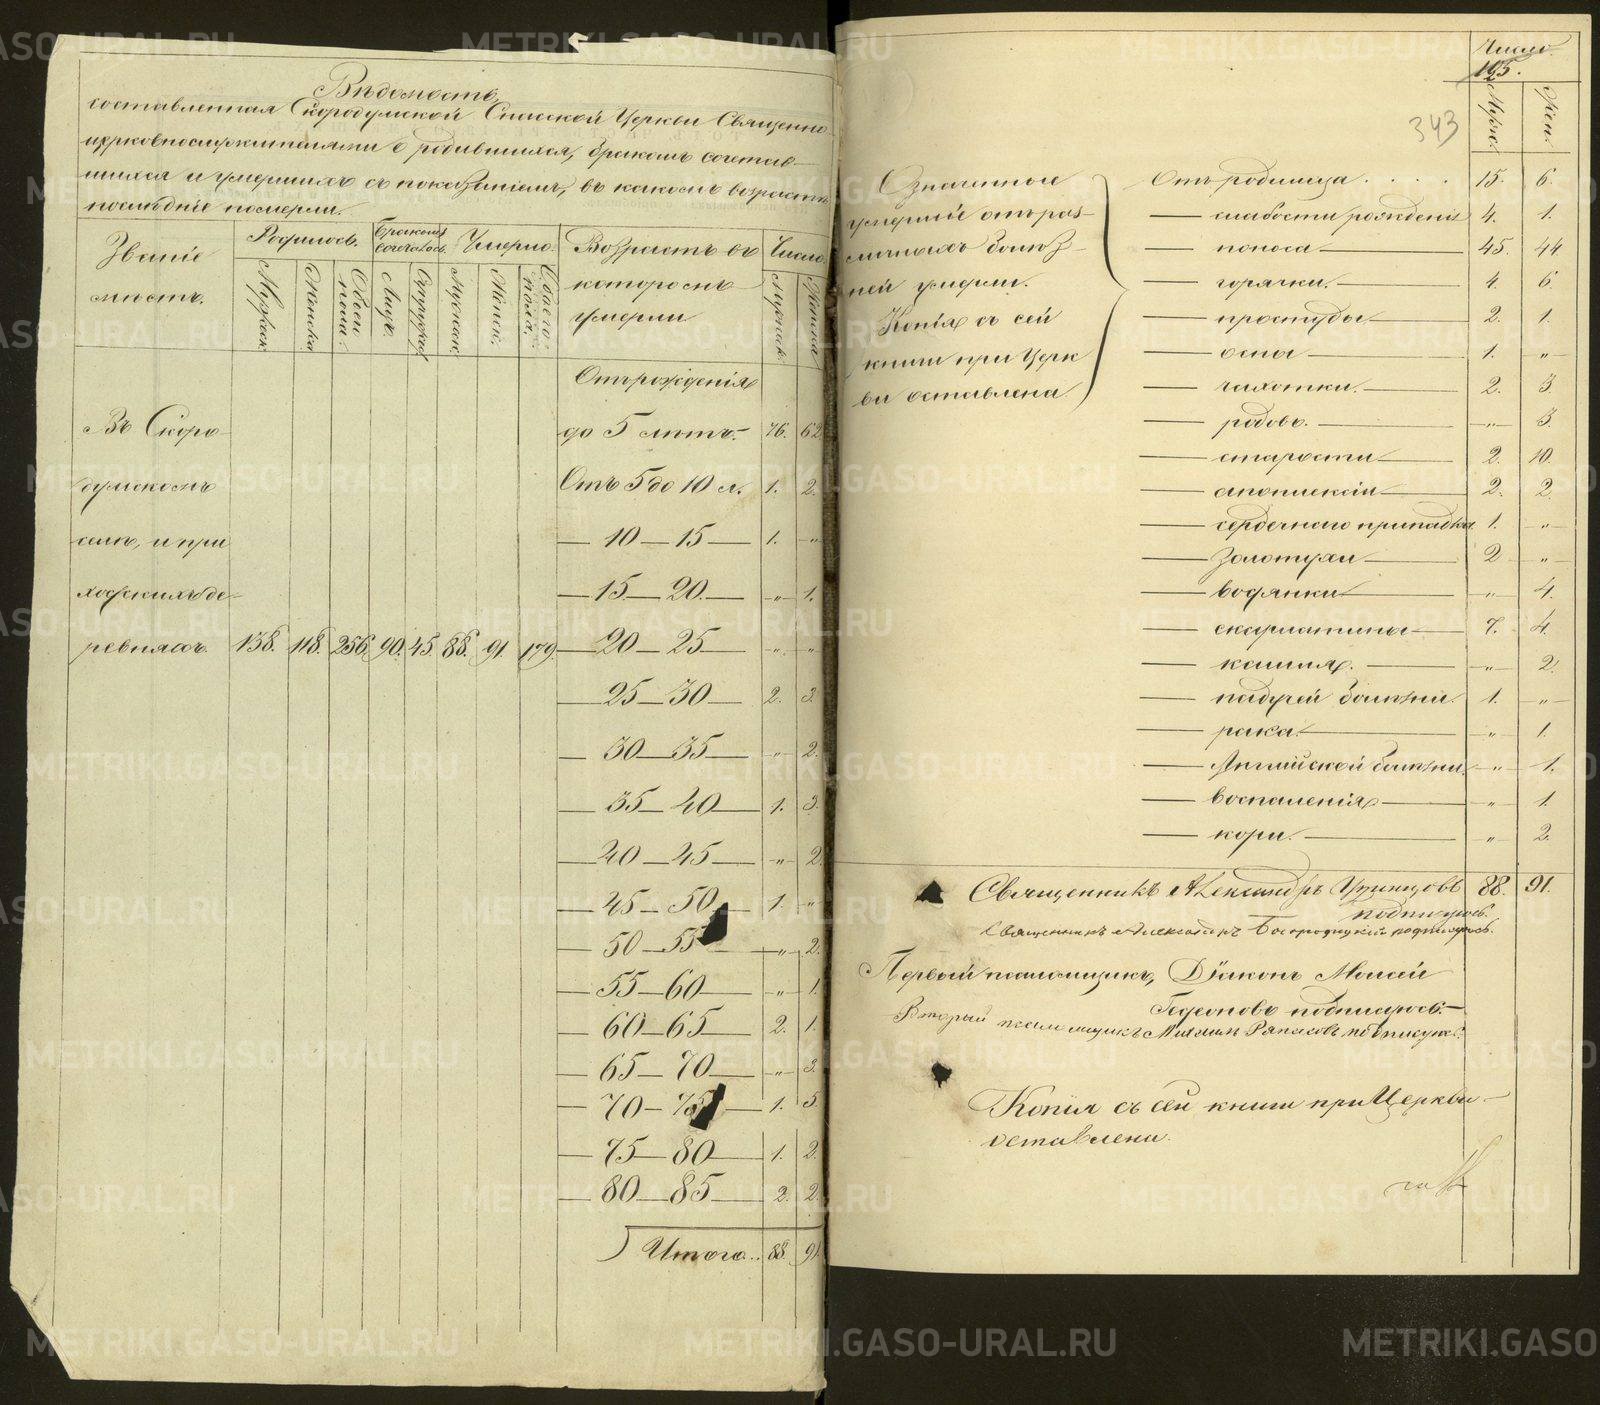 Вѣдомость,
составленная Скородумской Спасской Церкви Священно
церковнослужителями о родившихся, бракомъ сочетав-
шихся и умершихъ съ показаніемъ, въ какомъ возрастѣ
послѣдніе померли.
Званіе мѣстъ.
Родилось. Бракомъ сочеталось. Умерло. Возрастъ въ которомъ умерли Число
Мужска Женска Обоего пола. Лицъ. Супружес Мужска. Женск. Обоего пола. Мужск. Женска
Отъ рожденія
до 5 лѣтъ. 76. 62
Отъ 5 до 10 л. 1. 2.
— 10 — 15 — 1. „
— 15 — 20. — „ 1.
— 20 — 25 — „ „
— 25 — 30 — 2. 3
— 30 — 35 — „ 2.
— 35 — 40 — 1. 3.
— 40 — 45 — „ 2.
— 45 — 50 — 1. „
— 50 — 55 — „ 2.
— 55 — 60 — „ 1.
— 60 — 65 — 2. 1.
— 65 — 70 — „ 3.
— 70 — 75 — 1. 5
— 75 — 80 — 1. 2.
— 80 — 85 — 2. 2.
Итого.. 88. 91
Въ Скоро-
думскомъ
селѣ, и при
ходскихъ де-
ревняхъ. 138. 118. 256. 90. 45. 88. 91. 179.
Число
165.
Муж. Жен.
343
Означенные
умершіе отъ раз-
личныхъ болѣз-
ней умерли.
Копія съ сей
книги при Церк
ви оставлена.
Отъ родимца . . . . . 15. 6.
— слабости рожденія 4. 1.
— поноса — 45. 44
— горячки. — 4. 6.
— простуды — 2. 1.
— оспы — 1. „
— чахотки. — 2. 3.
— родовъ. — „ 3.
— старости — 2. 10.
— апоплексіи — 2. 2.
— сердечнаго припадка 1. „
— золотухи — 2 „
— водянки — „ 4.
— скарлатины — 7. 4.
— кашля. — „ 2.
— падучей болѣзни. 1. „
— рака. — „ 1.
— Англійской болѣзни. „ 1.
— воспаленія — „ 1.
— кори. — „ 2.
88. 91.
Священникъ Александръ
подписуюсь.
Священникъ Александръ Богородицкій подписуюсь.
Первый псаломщикъ, Діаконъ Моисей
Гедеоновъ подписуюсь.—
Второй псаломщикъ подписуюсь.
Копія съ сей книги при Церкви
оставлена.
METRIKI.GASO-URAL.RU